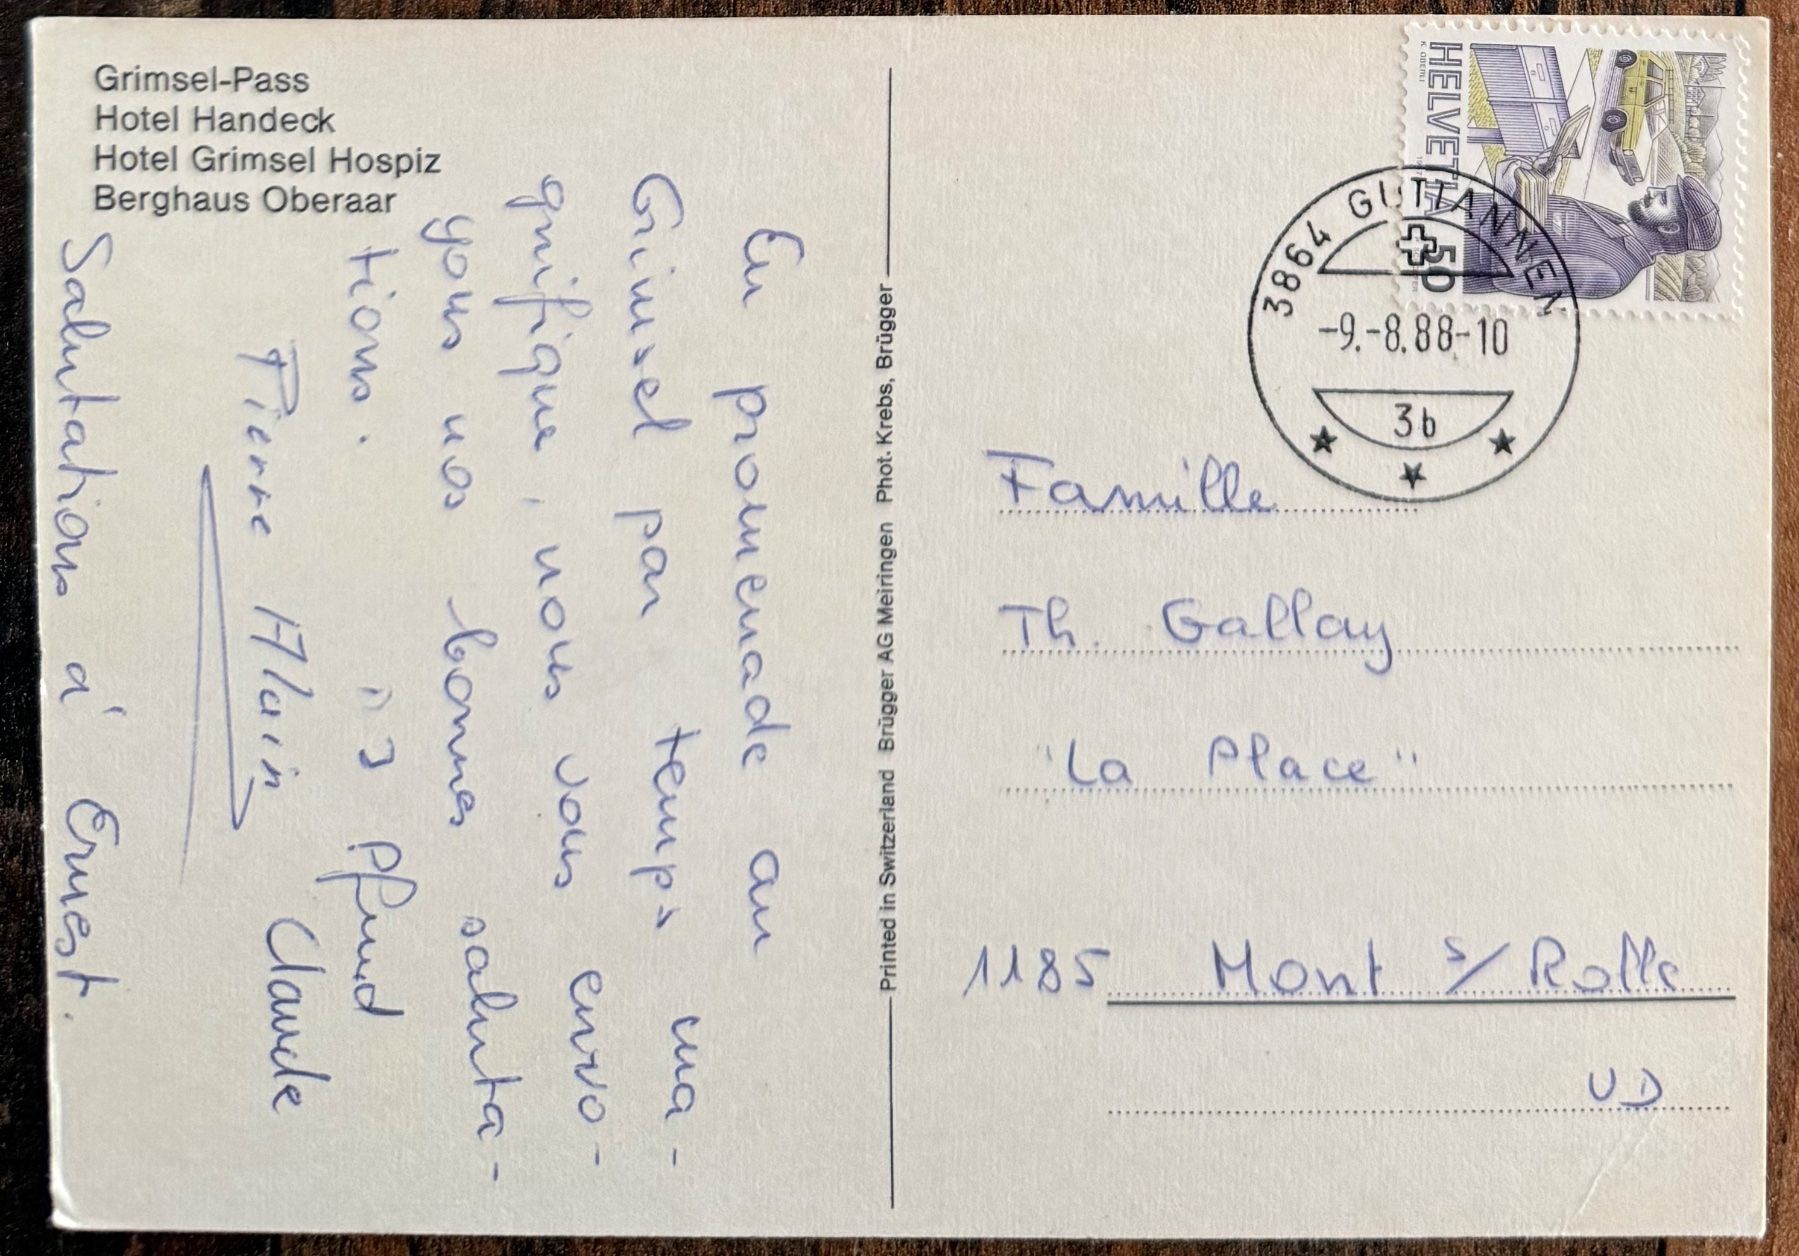 Grimsel-Pass
Hotel Handeck
Hotel Grimsel Hospiz
Berghaus Oberaar
En promenade au
Grimsel par temps ma-
gnifique, nous vous envo-
yons nos bonnes saluta-
tions.
Pfund
Pierre Alain Claude
Salutations à Ernest.
Printed in Switzerland Brügger AG Meiringen Phot. Krebs, Brügger
HELVETIA 50
K. OBERLI
3864 GUTTANNEN
-9.-8.88-10
3b
Famille
Th. Gallay
"La Place"
1185 Mont s/ Rolle
VD